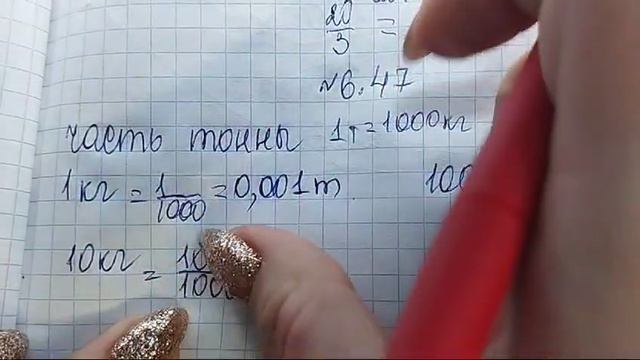 20/3 =
№6.47
часть тонны 1т=1000кг
1кг = 1/1000 = 0,001т. 100
10кг = 10/100